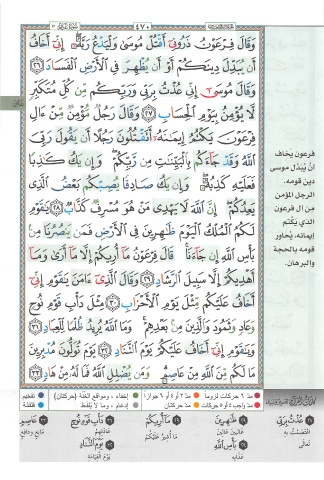 ٤٧٠
وَقَالَ فِرْعَوْنُ ذَرُونِىٓ أَقْتُلْ مُوسَىٰ وَلْيَدْعُ رَبَّهُۥٓ إِنِّىٓ أَخَافُ
أَن يُبَدِّلَ دِينَكُمْ أَوْ أَن يُظْهِرَ فِى ٱلْأَرْضِ ٱلْفَسَادَ ٢٦
وَقَالَ مُوسَىٰٓ إِنِّى عُذْتُ بِرَبِّى وَرَبِّكُم مِّن كُلِّ مُتَكَبِّرٍ
لَّا يُؤْمِنُ بِيَوْمِ ٱلْحِسَابِ ٢٧ وَقَالَ رَجُلٌ مُّؤْمِنٌ مِّنْ ءَالِ
فِرْعَوْنَ يَكْتُمُ إِيمَٰنَهُۥٓ أَتَقْتُلُونَ رَجُلًا أَن يَقُولَ رَبِّىَ
ٱللَّهُ وَقَدْ جَآءَكُم بِٱلْبَيِّنَٰتِ مِن رَّبِّكُمْ وَإِن يَكُ كَٰذِبًا
فَعَلَيْهِ كَذِبُهُۥ وَإِن يَكُ صَادِقًا يُصِبْكُم بَعْضُ ٱلَّذِى
يَعِدُكُمْ إِنَّ ٱللَّهَ لَا يَهْدِى مَنْ هُوَ مُسْرِفٌ كَذَّابٌ ٢٨ يَٰقَوْمِ
لَكُمُ ٱلْمُلْكُ ٱلْيَوْمَ ظَٰهِرِينَ فِى ٱلْأَرْضِ فَمَن يَنصُرُنَا مِنۢ
بَأْسِ ٱللَّهِ إِن جَآءَنَا قَالَ فِرْعَوْنُ مَآ أُرِيكُمْ إِلَّا مَآ أَرَىٰ وَمَآ
أَهْدِيكُمْ إِلَّا سَبِيلَ ٱلرَّشَادِ ٢٩ وَقَالَ ٱلَّذِىٓ ءَامَنَ يَٰقَوْمِ إِنِّىٓ
أَخَافُ عَلَيْكُم مِّثْلَ يَوْمِ ٱلْأَحْزَابِ ٣٠ مِثْلَ دَأْبِ قَوْمِ نُوحٍ
وَعَادٍ وَثَمُودَ وَٱلَّذِينَ مِنۢ بَعْدِهِمْ وَمَا ٱللَّهُ يُرِيدُ ظُلْمًا لِّلْعِبَادِ ٣١
وَيَٰقَوْمِ إِنِّىٓ أَخَافُ عَلَيْكُمْ يَوْمَ ٱلتَّنَادِ ٣٢ يَوْمَ تُوَلُّونَ مُدْبِرِينَ
مَا لَكُم مِّنَ ٱللَّهِ مِنْ عَاصِمٍ وَمَن يُضْلِلِ ٱللَّهُ فَمَا لَهُۥ مِنْ هَادٍ ٣٣
فرعون يخاف
أن يُبَدِّل موسى
دين قومه.
الرجل المؤمن
من آل فرعون
الذي يَكْتم
إيمانه، يُحاور
قومه بالحجة
والبرهان.
مدّ ٦ حركات لزوماً
مدّ ٢ أو ٤ أو ٦ جوازاً
إخفاء، ومواقع الغُنَّة (حركتان)
تفخيم
مدّ واجب ٤ أو ٥ حركات
مدّ حركتان
إدغام، وما لا يُلفَظ
قلقلة
عُذْتُ بِرَبِّي
ظَاهِرِينَ
مَا أُرِيكُمْ
دَأْبِ قَوْمِ نُوحٍ
عَاصِمٍ
بَأْسِ اللهِ
يَوْمَ التَّنَادِ